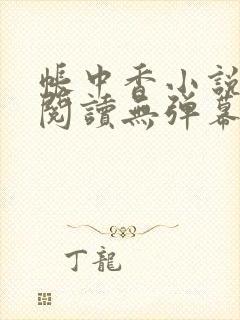 帳中香小說
閱讀無彈幕
丁龍